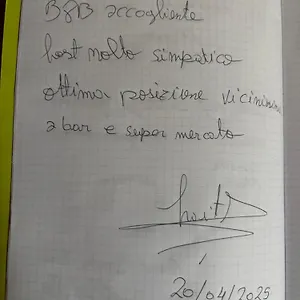 B&B accogliente
host molto simpatico
ottima posizione vicinissima
a bar e super mercato
20/04/2025